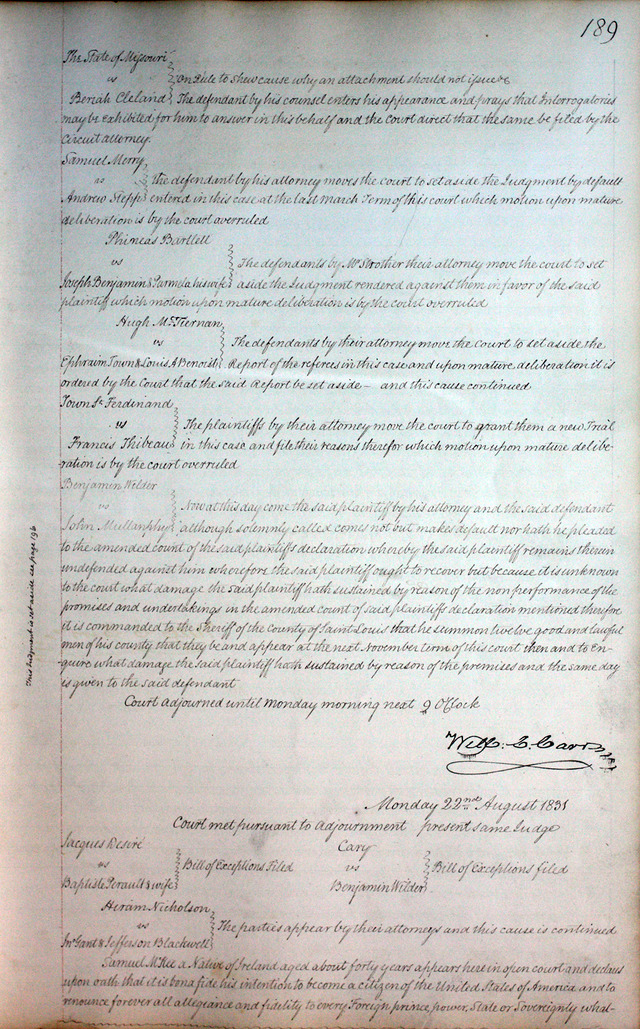 189
The State of Missouri
vs
On Rule to shew cause why an attachment should not issue &c
Beriah Cleland The defendant by his counsel enters his appearance and prays that Interrogatories
may be exhibited for him to answer in this behalf and the court direct that the same be filed by the
Circuit attorney.
Samuel Merry
vs the defendant by his attorney moves the court to set aside the Judgment by default
Andrew Stepp entered in this case at the last March Term of this court which motion upon mature
deliberation is by the court overruled
Phineas Bartlett
vs The defendants by Mr Strother their attorney move the court to set
Joseph Benjamin & Parmela his wife aside the Judgment rendered against them in favor of the said
plaintiff which motion upon mature deliberation is by the court overruled
Hugh McTiernan
vs The defendants by their attorney move the Court to set aside the
Ephraim Town & Louis A Benoist Report of the referees in this case and upon mature deliberation it is
ordered by the Court that the said Report be set aside – and this cause continued
Town St Ferdinand
vs The plaintiffs by their attorney move the court to grant them a new Trial
Francis Thibeau in this case and file their reasons therefor which motion upon mature delibe-
ration is by the court overruled
Benjamin Wilder
vs Now at this day come the said plaintiff by his attorney and the said defendant
John Mullanphy although solemnly called comes not but makes default nor hath he pleaded
to the amended count of the said plaintiffs declaration whereby the said plaintiff remains therein
undefended against him wherefore the said plaintiff ought to recover but because it is unknown
to the court what damage the said plaintiff hath sustained by reason of the non performance of the
promises and undertakings in the amended count of said plaintiffs declaration mentioned therefore
it is commanded to the Sheriff of the County of Saint Louis that he summon twelve good and lawful
men of his county that they be and appear at the next November term of this court then and to En-
quire what damage the said plaintiff hath sustained by reason of the premises and the same day
is given to the said defendant
Court adjourned until Monday morning next 9 O'Clock
This Judgment is set aside see page 196
Will: C. Carr
Monday 22nd August 1831
Court met pursuant to Adjournment present same Judge
Jacques Desiré
vs Bill of Exceptions Filed
Baptiste Perault & wife
Cary
vs Bill of Exceptions filed
Benjamin Wilder
Hiram Nicholson
vs The parties appear by their attorneys and this cause is continued
Jno Gant & Jefferson Blackwell
Samuel McKee a Native of Ireland aged about forty years appears here in open court and declares
upon oath that it is bona fide his intention to become a citizen of the United States of America and to
renounce forever all allegiance and fidelity to every Foreign prince, power, State or Sovereignty what-